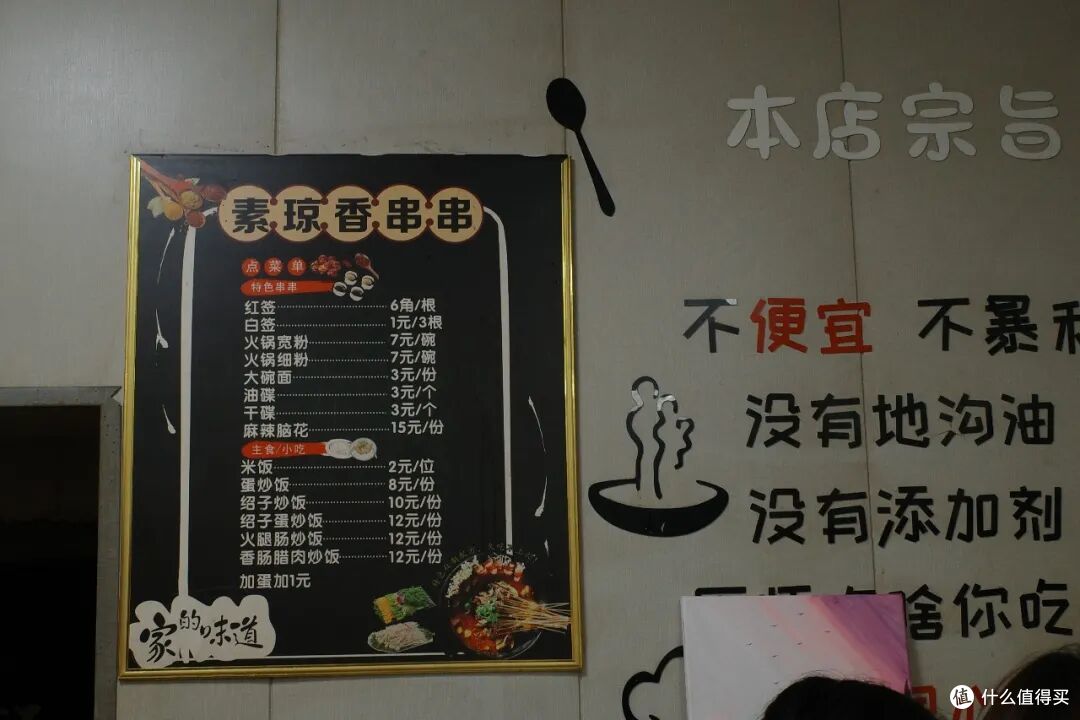 素琼香串串
点菜单
特色串串
红签 6角/根
白签 1元/3根
火锅宽粉 7元/碗
火锅细粉 7元/碗
大碗面 3元/份
油碟 3元/个
干碟 3元/个
麻辣脑花 15元/份
主食/小吃
米饭 2元/位
蛋炒饭 8元/份
绍子炒饭 10元/份
绍子蛋炒饭 12元/份
火腿肠炒饭 12元/份
香肠腊肉炒饭 12元/份
加蛋加1元
家的味道
本店宗旨
不便宜 不暴利
没有地沟油
没有添加剂
啥你吃
值 什么值得买